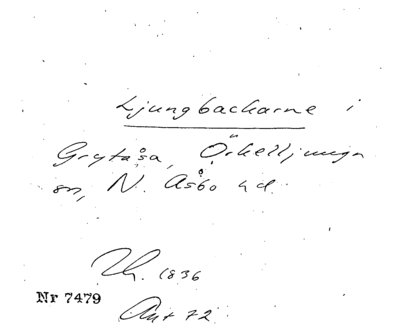 Ljungbackarne i
Grytåsa, Örkelljunga
sn, N. Åsbo hd.
Th. 1836
Nr 7479
Ant 72